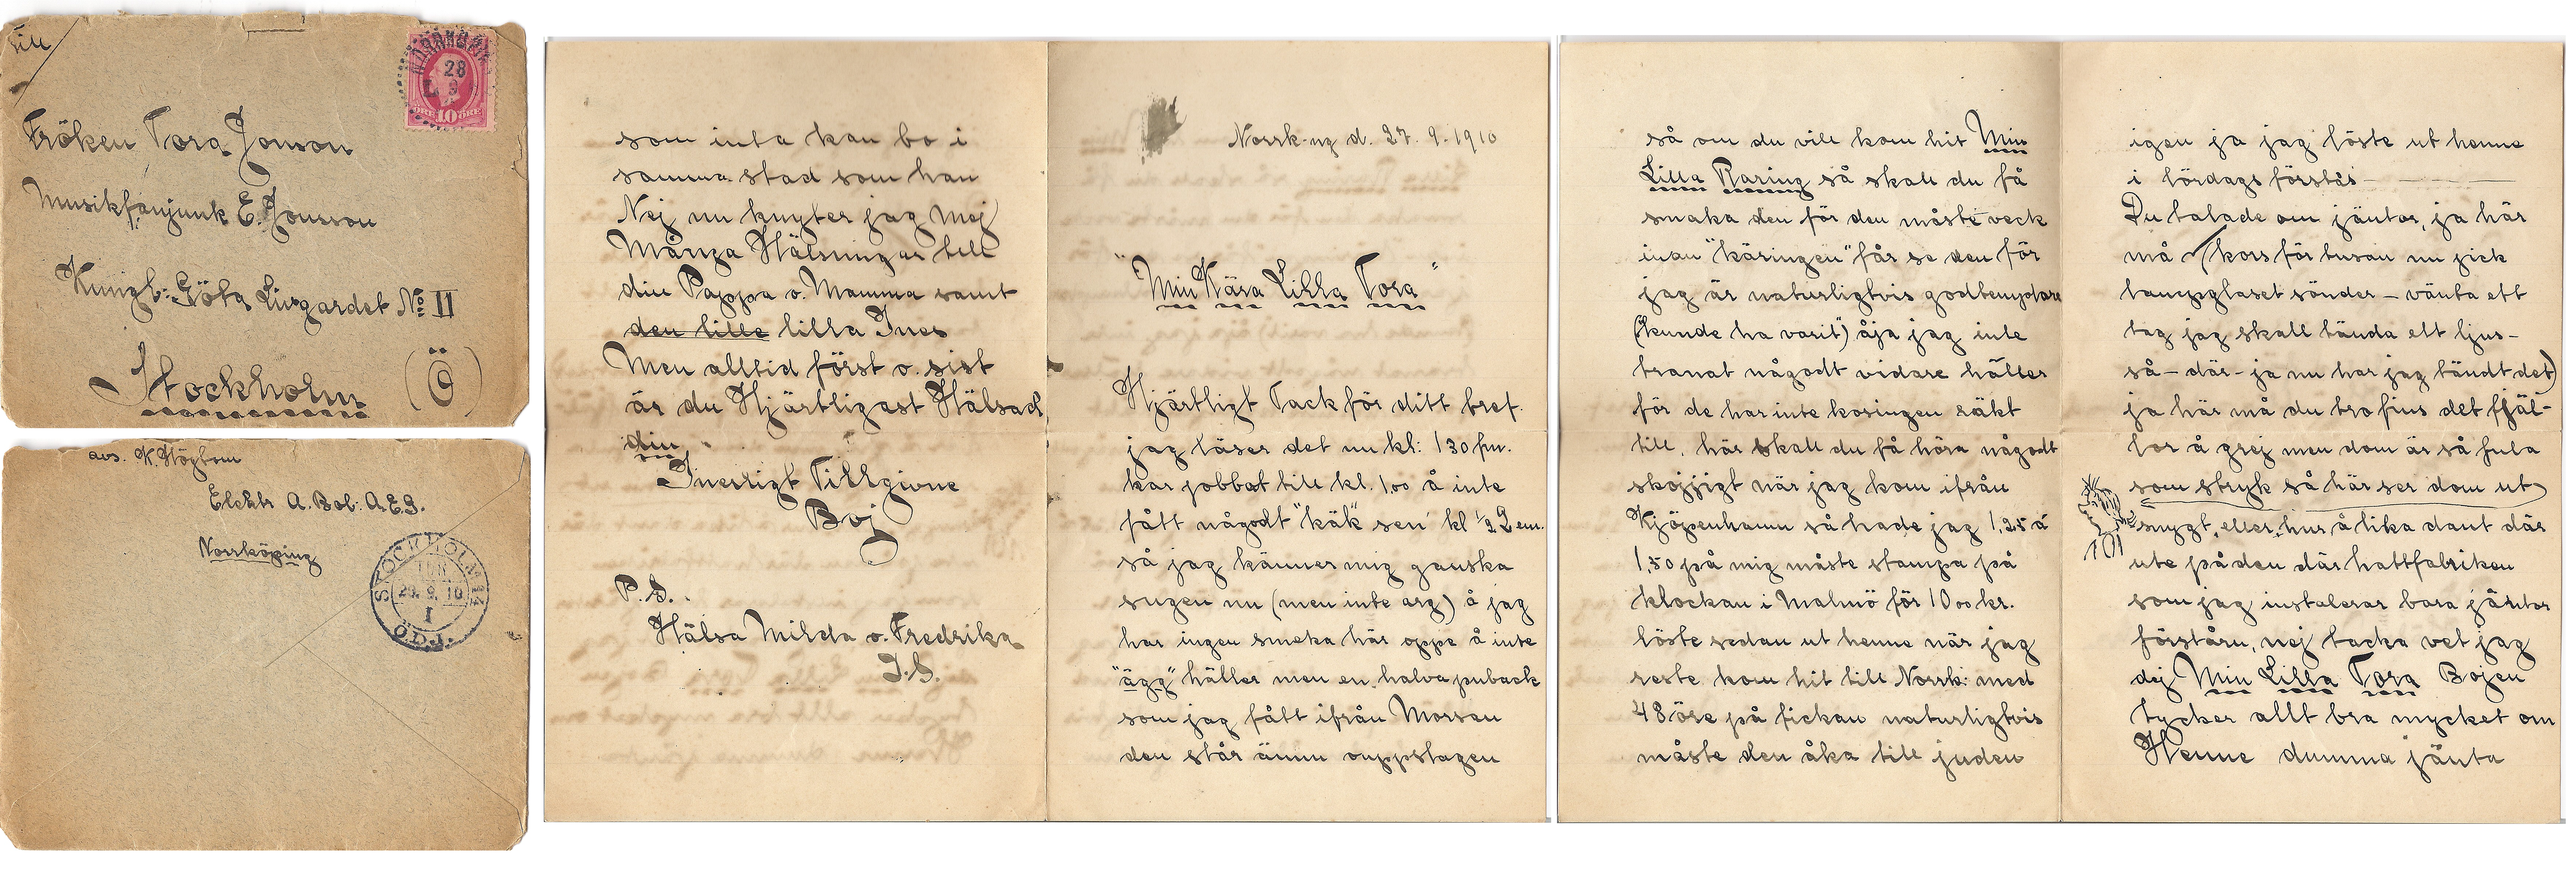 Till
NORRKÖPING
28
9
ÖRE 10 ÖRE
Fröken Tora Jonson
Musikfanjunk E. Jonsson
Kungl: Göta Livgardet No II
Stockholm (Ö)
avs. K. Högbom
Elektr A. Bol: A.E.G.
Norrköping
STOCKHOLM
29. 9. 10
I
Ö.D.J.
som inta kan bo i
samma stad som han
Nej nu knyter jag Mej
Många Hälsningar till
din Pappa o. Mamma samt
den lille lilla Ines
Men alltid först o. sist
är du Hjärtligast Hälsad
din
Inerligt Tillgivne
Boj
P.S.
Hälsa Milda o. Fredrika
D.S.
Norrk-ng d. 27. 9. 1910
"Min Kära Lilla Tora"
Hjärtligt Tack för ditt bref.
jag läser det nu kl: 130 fm.
har jobbat till kl. 1.00 å inte
fått någodt "käk" sen kl ½2 em.
så jag känner mig ganska
sugen nu (men inte arg) å jag
har ingen smeka här oppe å inte
"ägg" häller men en halva puback
som jag fått ifrån Morsen
den står ännu ouppstagen
så om du vill kom hit Min
Lilla Raring så skall du få
smaka den för den måste veck
inan "käringen" får se den för
jag är naturligtvis godtemplare
("kunde ha varit") åja jag inte
tranat någodt vidare häller
för de har inte kosingen räkt
till, här skall du få höra någodt
skojjigt när jag kom ifrån
Kjöpenhamn så hade jag 1,25 á
1,50 på mig måste stampa på
klockan i Malmö för 10 00 kr.
löste sedan ut henne när jag
reste kom hit till Norrk: med
48 öre på fickan naturligtvis
måste den åka till juden
igen ja jag löste ut henne
i lördags förstås
Du talade om jäntor, ja här
må (kors för tusan nu gick
lampglaset sönder – vänta ett
tag jag skall tända ett ljus –
så – där – ja nu har jag tändt det)
ja här må du tro fins det fjäl-
lor å grej men dom är så fula
som stryk så här ser dom ut
snygt, eller hur å lika dant där
ute på den där hattfabriken
som jag instalerar bara jäntor
förståru, nej tacka vet jag
dej Min Lilla Tora Bojen
tycker allt bra mycket om
Henne dumma jänta